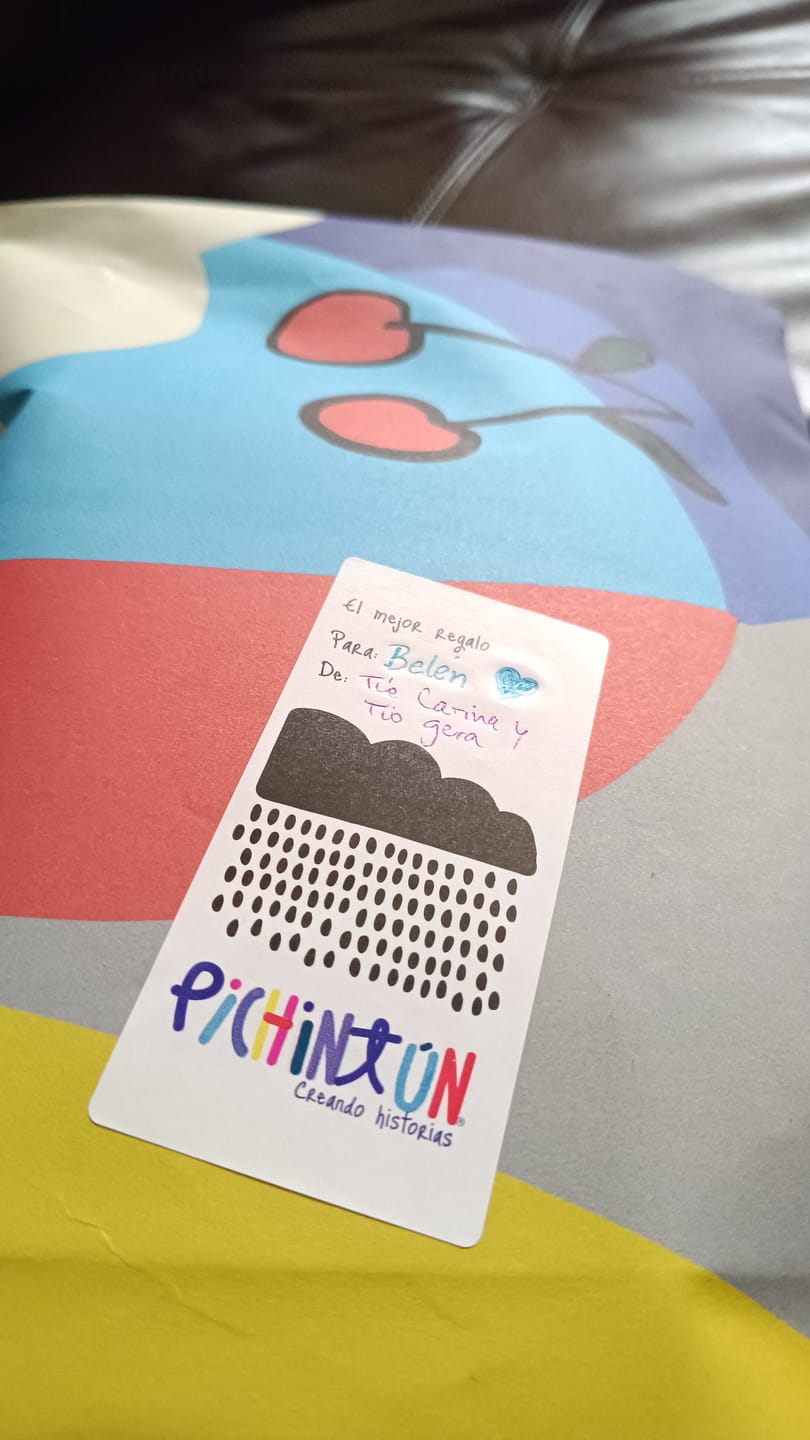 El mejor regalo
Para: Belén
De: Tía Carina y
Tío gera
PiCHiNtÚN®
Creando historias